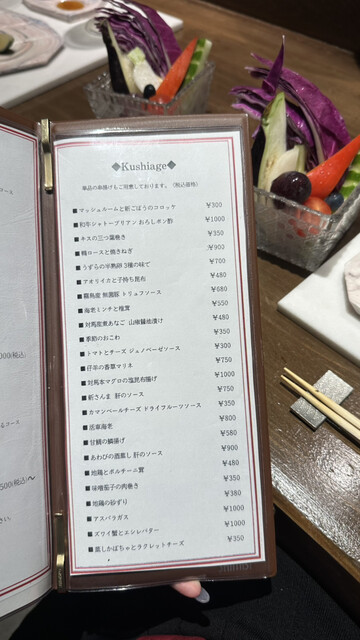 コース
000(税込)
するコース
500(税込)〜
さい。
◆Kushiage◆
単品の串揚げもご用意しております。(税込価格)
■マッシュルームと新ごぼうのコロッケ ¥300
■和牛シャトーブリアン おろしポン酢 ¥1000
■キスの三つ葉巻き ¥350
■鴨ロースと焼きねぎ ¥900
■うずらの半熟卵 3種の味で ¥700
■アオリイカと子持ち昆布 ¥480
■霧島産 無菌豚 トリュフソース ¥680
■海老ミンチと椎茸 ¥550
■対馬産東あなご 山椒醤油漬け ¥480
■季節のおこわ ¥350
■トマトとチーズ ジェノベーゼソース ¥300
■仔羊の香草マリネ ¥750
■対馬本マグロの塩昆布揚げ ¥1000
■新さんま 肝のソース ¥750
■カマンベールチーズ ドライフルーツソース ¥350
■活車海老 ¥800
■甘鯛の鱗揚げ ¥580
■あわびの酒蒸し 肝のソース ¥900
■地鶏とポルチーニ茸 ¥480
■味噌茄子の肉巻き ¥350
■地鶏の砂ずり ¥380
■アスパラガス ¥1000
■ズワイ蟹とエシレバター ¥1000
■蒸しかぼちゃとラグレットチーズ ¥350